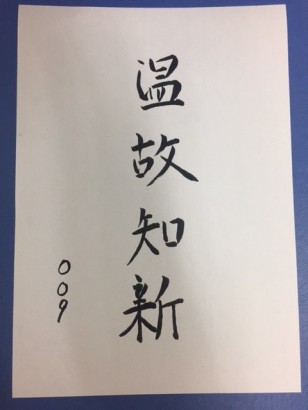 温故知新
009